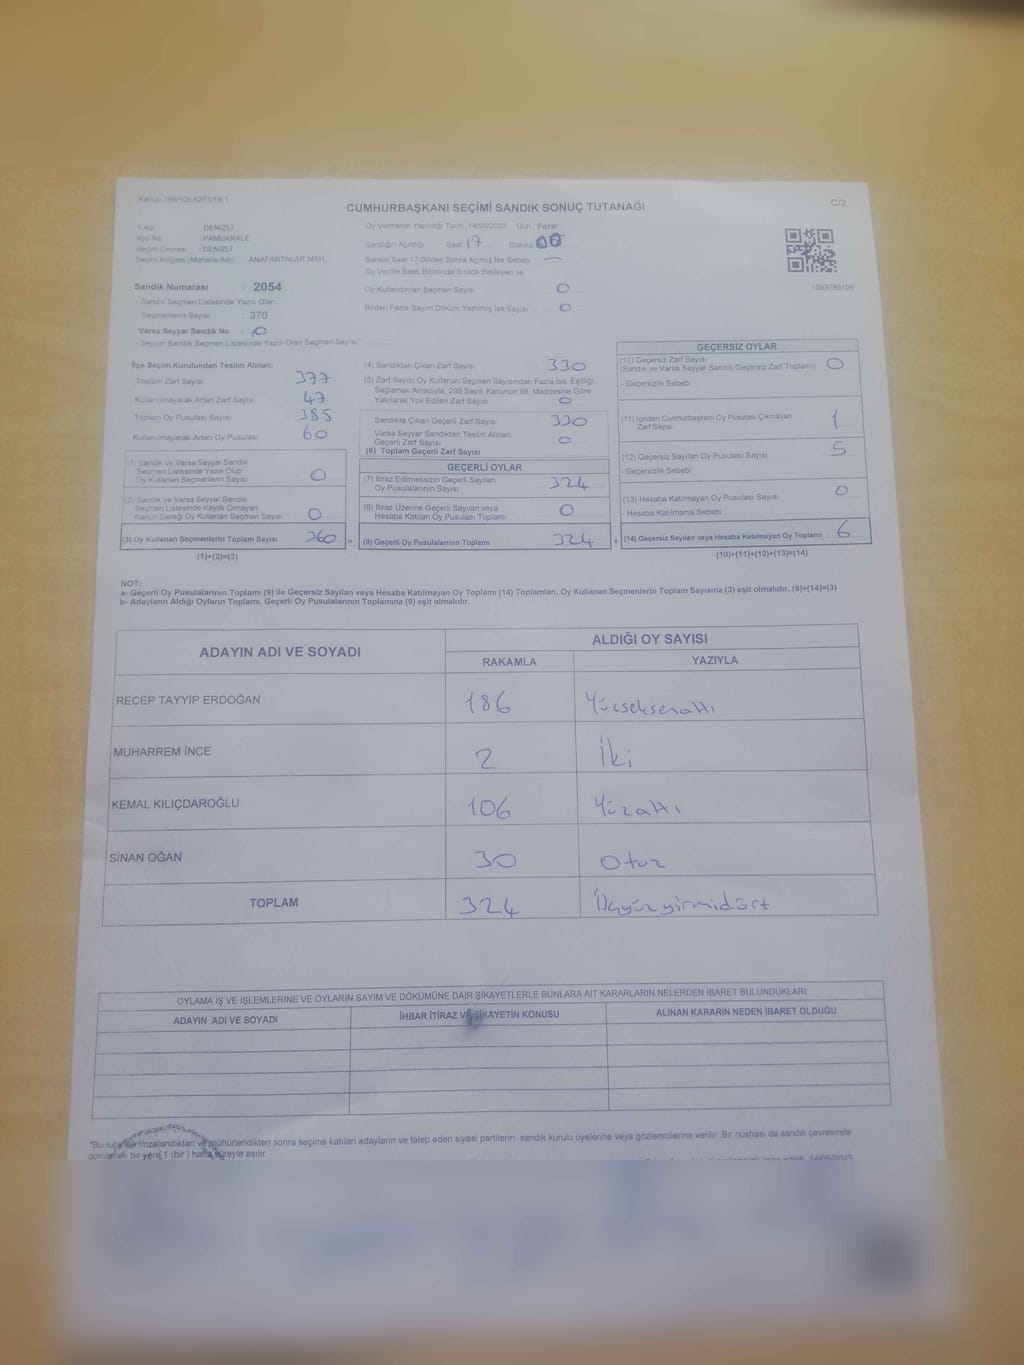 Kanun 298/105,6271/18-1
C/2
CUMHURBAŞKANI SEÇİMİ SANDIK SONUÇ TUTANAĞI
İl Adı : DENİZLİ
İlçe Adı : PAMUKKALE
Seçim Çevresi : DENİZLİ
Seçim Bölgesi (Mahalle Adı) : ANAFARTALAR MAH.
Sandık Numarası : 2054
- Sandık Seçmen Listesinde Yazılı Olan
Seçmenlerin Sayısı : 370
Varsa Seyyar Sandık No : 0
- Seyyar Sandık Seçmen Listesinde Yazılı Olan Seçmen Sayısı :
Oy Vermenin Yapıldığı Tarih :14/05/2023 Gün : Pazar
Sandığın Açıldığı Saat 17 Dakika 00
Sandık Saat 17.00'dan Sonra Açılmış İse Sebebi : —
Oy Verme Saati Bitiminde Sırada Bekleyen ve
Oy Kullandırılan Seçmen Sayısı 0
Birden Fazla Sayım Döküm Yapılmış İse Sayısı 0
1003789109
İlçe Seçim Kurulundan Teslim Alınan:
Toplam Zarf Sayısı 377
- Kullanılmayarak Artan Zarf Sayısı 47
Toplam Oy Pusulası Sayısı 385
- Kullanılmayarak Artan Oy Pusulası 60
(1) Sandık ve Varsa Seyyar Sandık
Seçmen Listesinde Yazılı Olup
Oy Kullanan Seçmenlerin Sayısı 0
(2) Sandık ve Varsa Seyyar Sandık
Seçmen Listesinde Kayıtlı Olmayan
Kanun Gereği Oy Kullanan Seçmen Sayısı 0
(3) Oy Kullanan Seçmenlerin Toplam Sayısı 360 =
(1)+(2)=(3)
(4) Sandıktan Çıkan Zarf Sayısı 330
(5) Zarf Sayısı Oy Kullanan Seçmen Sayısından Fazla İse, Eşitliği
Sağlamak Amacıyla, 298 Sayılı Kanunun 98. Maddesine Göre
Yakılarak Yok Edilen Zarf Sayısı 0
Sandıkta Çıkan Geçerli Zarf Sayısı 330
Varsa Seyyar Sandıktan Teslim Alınan
Geçerli Zarf Sayısı 0
(6) Toplam Geçerli Zarf Sayısı
GEÇERLİ OYLAR
(7) İtiraz Edilmeksizin Geçerli Sayılan
Oy Pusulalarının Sayısı 324
(8) İtiraz Üzerine Geçerli Sayılan veya
Hesaba Katılan Oy Pusulası Toplamı 0
(9) Geçerli Oy Pusulalarının Toplamı 324 +
GEÇERSİZ OYLAR
(10) Geçersiz Zarf Sayısı
(Sandık ve Varsa Seyyar Sandık Geçersiz Zarf Toplamı) 0
- Geçersizlik Sebebi :
(11) İçinden Cumhurbaşkanı Oy Pusulası Çıkmayan
Zarf Sayısı 1
(12) Geçersiz Sayılan Oy Pusulası Sayısı 5
- Geçersizlik Sebebi :
(13) Hesaba Katılmayan Oy Pusulası Sayısı 0
- Hesaba Katılmama Sebebi :
(14) Geçersiz Sayılan veya Hesaba Katılmayan Oy Toplamı 6
(10)+(11)+(12)+(13)=(14)
NOT:
a- Geçerli Oy Pusulalarının Toplamı (9) ile Geçersiz Sayılan veya Hesaba Katılmayan Oy Toplamı (14) Toplamları, Oy Kullanan Seçmenlerin Toplam Sayısına (3) eşit olmalıdır. (9)+(14)=(3)
b- Adayların Aldığı Oyların Toplamı, Geçerli Oy Pusulalarının Toplamına (9) eşit olmalıdır.
ADAYIN ADI VE SOYADI
ALDIĞI OY SAYISI
RAKAMLA YAZIYLA
RECEP TAYYİP ERDOĞAN 186 Yüzseksenaltı
MUHARREM İNCE 2 İki
KEMAL KILIÇDAROĞLU 106 Yüzaltı
SİNAN OĞAN 30 Otuz
TOPLAM 324 Üçyüzyirmidört
OYLAMA İŞ VE İŞLEMLERİNE VE OYLARIN SAYIM VE DÖKÜMÜNE DAİR ŞİKAYETLERLE BUNLARA AİT KARARLARIN NELERDEN İBARET BULUNDUKLARI
ADAYIN ADI VE SOYADI İHBAR İTİRAZ VE ŞİKAYETİN KONUSU ALINAN KARARIN NEDEN İBARET OLDUĞU
*Bu tutanak imzalandıktan ve mühürlendikten sonra seçime katılan adayların ve talep eden siyasi partilerin sandık kurulu üyelerine veya gözlemcilerine verilir. Bir nüshası da sandık çevresinde
görülecek bir yere 1 (bir) hafta süreyle asılır.
14/05/2023